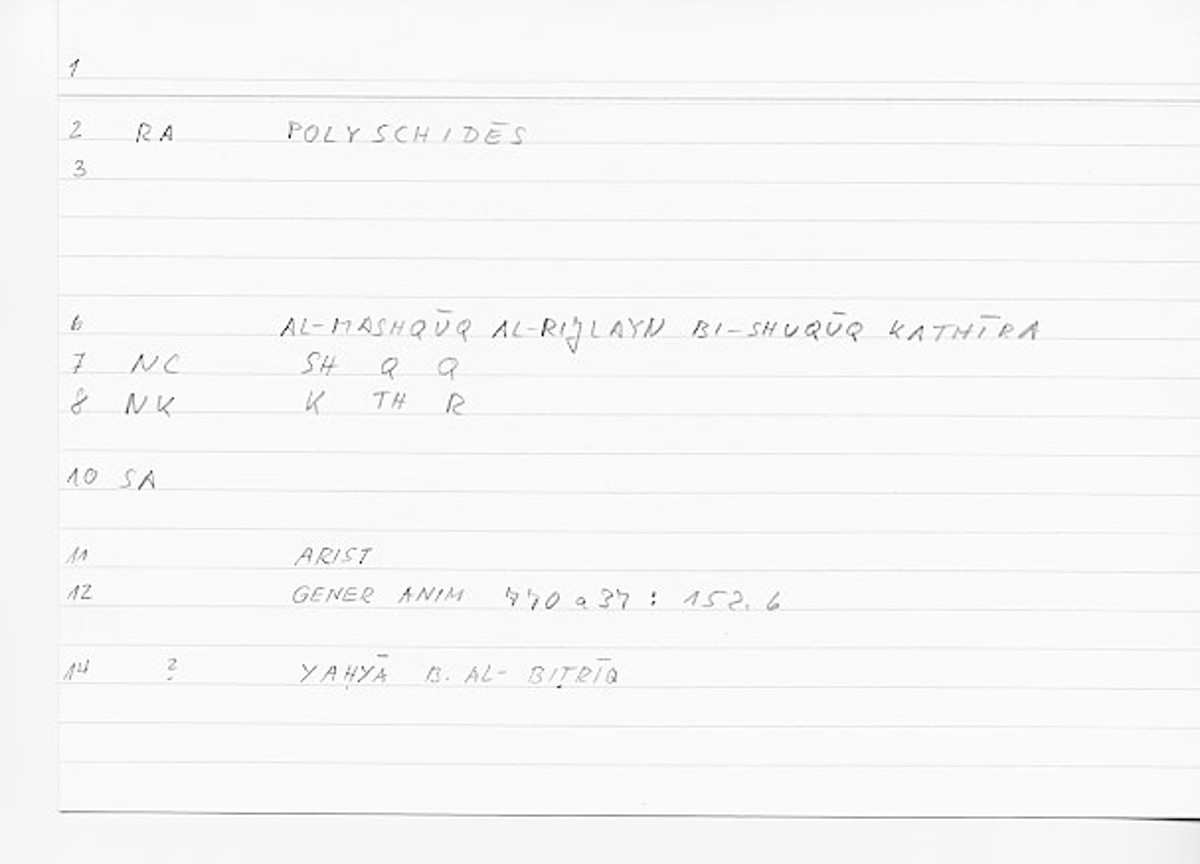 1
2 RA POLYSCHIDĒS
3
6 AL-MASHQŪQ AL-RIJLAYN BI-SHUQŪQ KATHĪRA
7 NC SH Q Q
8 NK K TH R
10 SA
11 ARIST
12 GENER ANIM 770 a 37 : 152. 6
14 ? YAḤYĀ B. AL-BIṬRĪQ